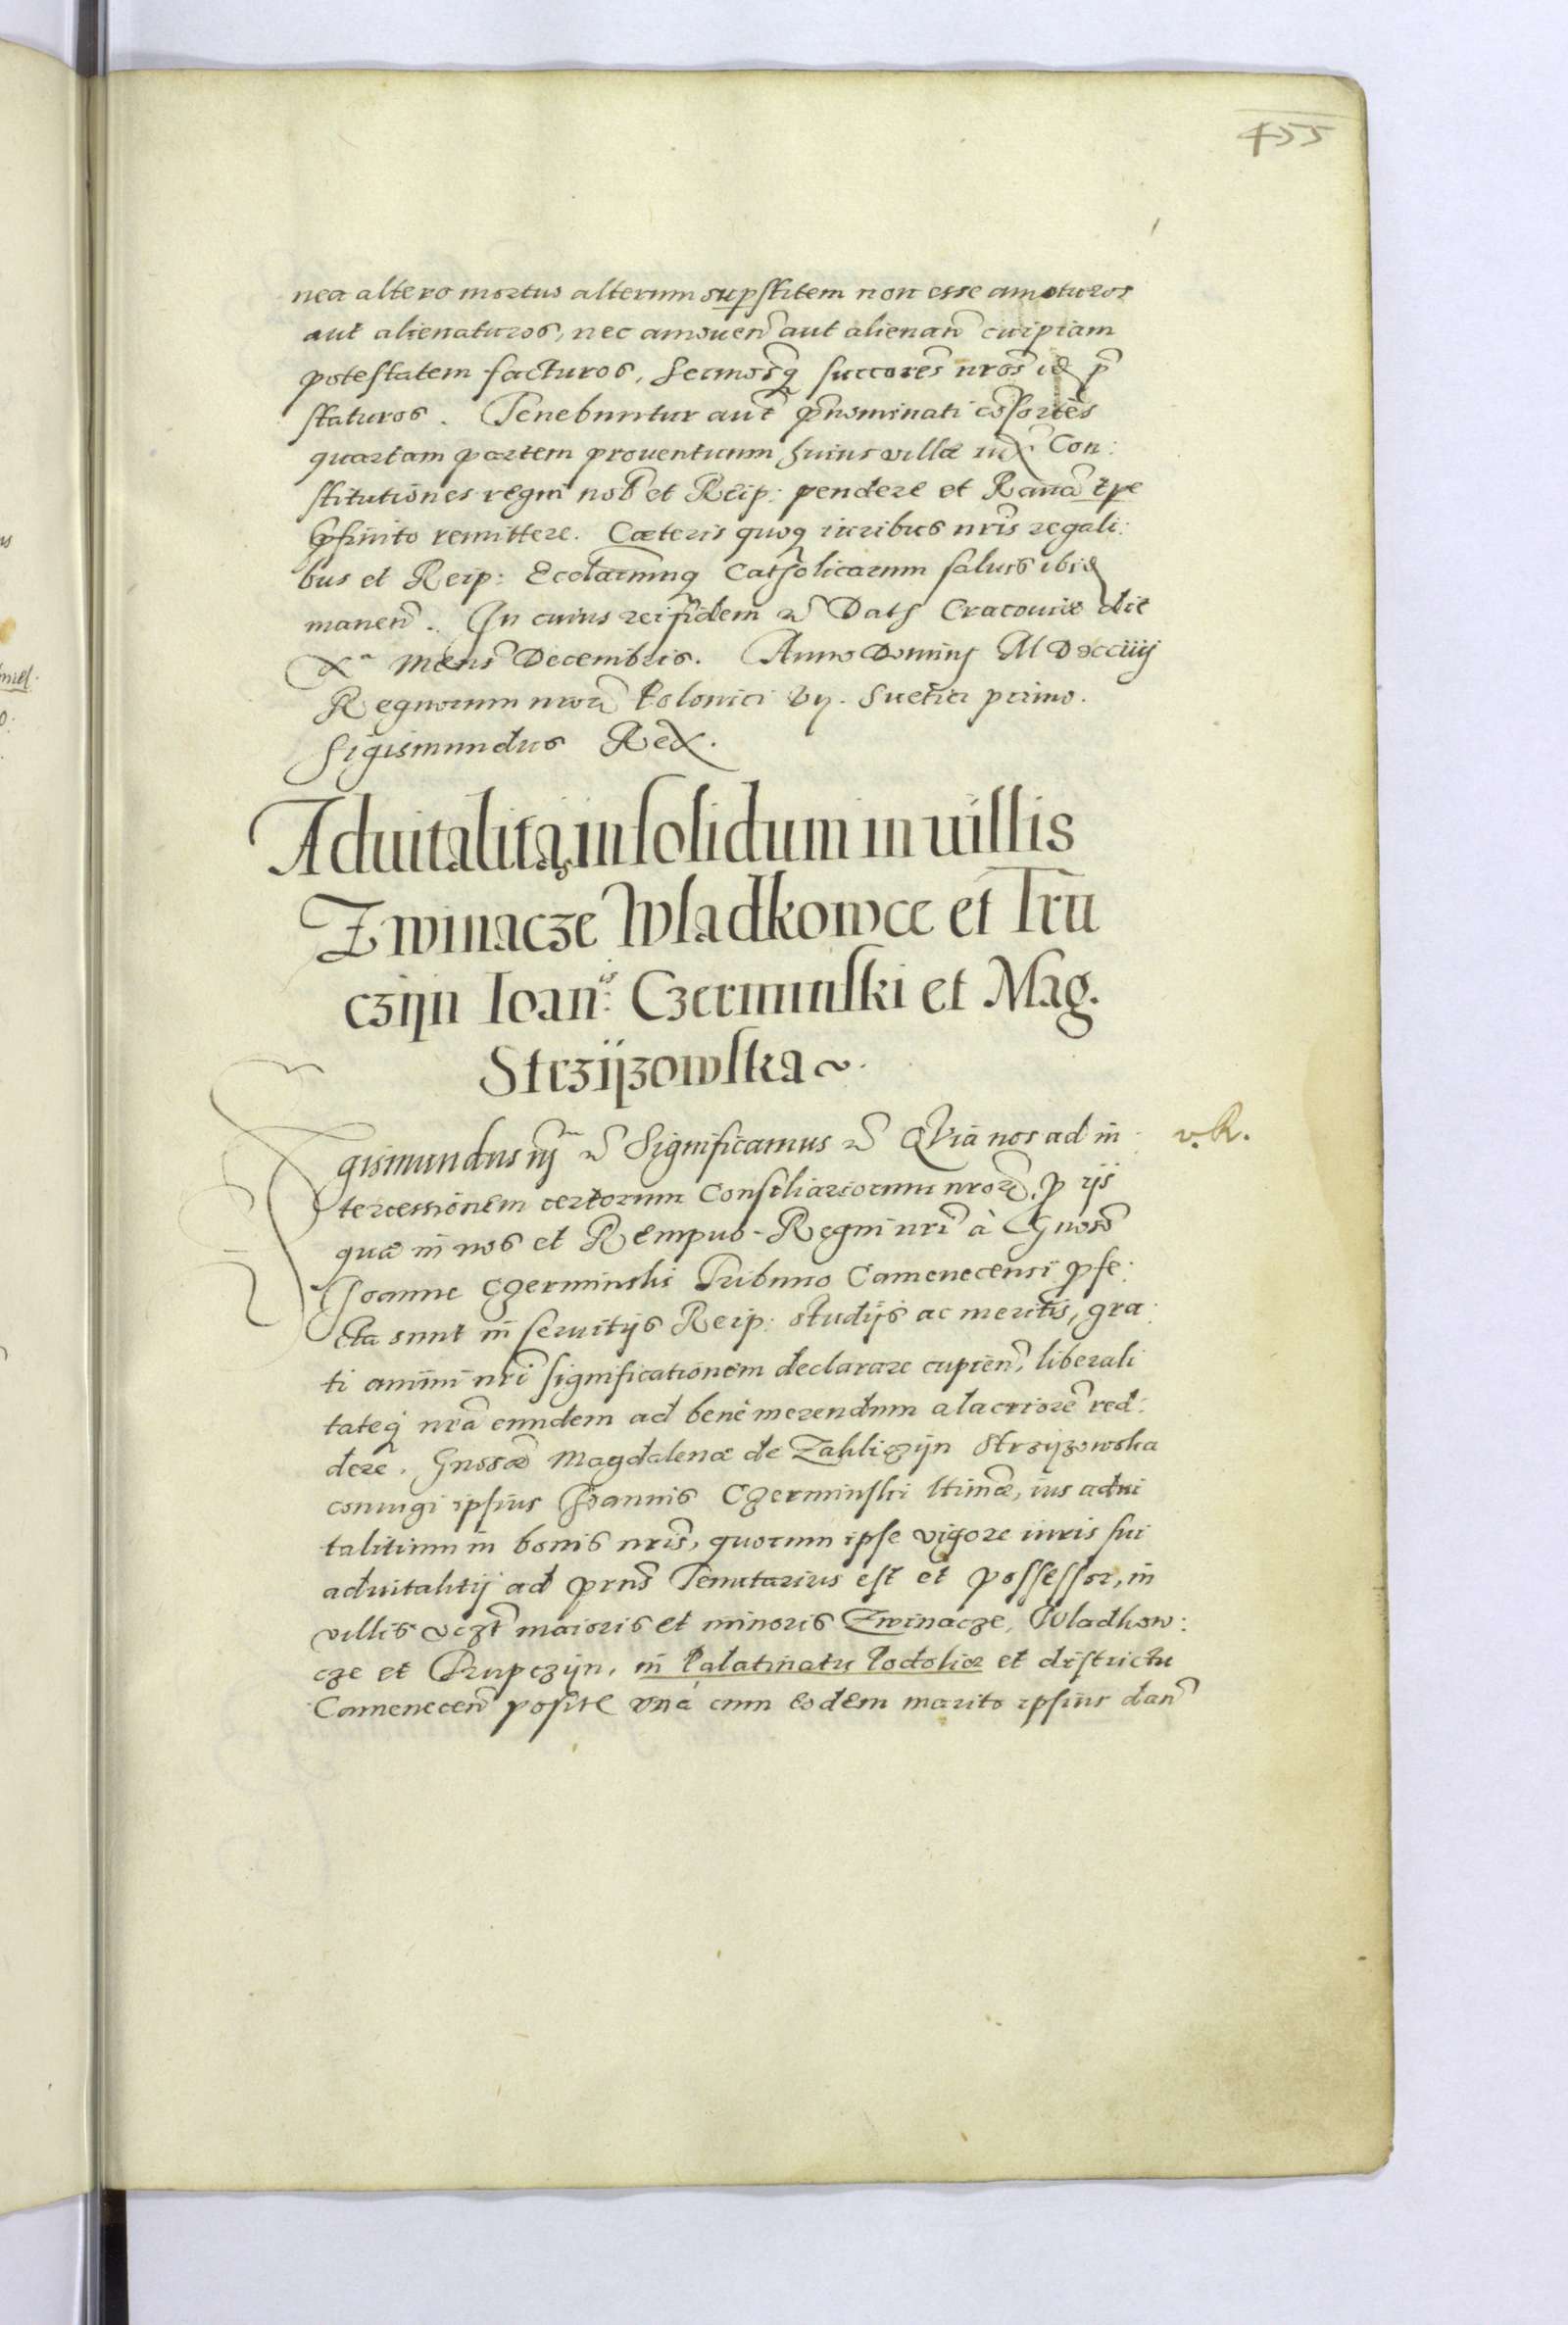 455
nea altero mortuo alterum supstitem non esse amoturos
aut alienaturos, nec amouen̄ aut alienan̄ cuipiam
potestatem facturos, Sermosq̄ succores nros id p̄
staturos. Tenebuntur aut̄ p̄nominati cōsortes
quartam partem prouentuum huius villæ iux̄ Con:
stitutiones regni nob̄ et Reip: pendere et Rauā tpe
p̄finito remittere. Cæteris quoq̄ iuribus nris regali:
bus et Reip: Ecclarumq̄ Catholicarum saluis ibid
manen̄. In cuius rei fidem Dat Cracouiæ die
Xª Mens̄ Decembris. Anno Domini M D xciiij
Regnorum nror̄ Poloniei vij. Suetiei primo.
Sigismundus Rex.
Aduitalitą insolidum in uillis
Zwinacze Wladkowce et Tru
czÿn Ioanis Czerminski et Mag.
Strzÿzowska ~.
gismundus iij Significamus Quia nos ad in
v. R.
tercessionem certorum Consiliariorum nror̄, p̄ ijs
quæ in nos et Rempub. Regni nri à Gnoso
Joanne Czerminski Tribuno Camenecensi pfe:
cta sunt in seruitijs Reip: studijs ac meritis, gra:
ti animi nri significationem declarare cupien̄, liberali
tateq̄ nrā eundem ad bene merendum alacriorē red:
dere. Gnosæ Magdalenæ de Zakliczÿn Strzÿzowska
coniugi ipsius Joannis Czerminski ltimæ, ius adui
talitium in bonis nris, quorum ipse vigore iuris sui
aduitalitij ad prns Tenutarius est et possessor, in
villis vczt maioris et minoris Zwinacze, Wladkow:
cze et Trupczÿn, in Palatinatu Podoliæ et districtu
Camenecen̄ posit unà cum eodem marito ipsius dan̄